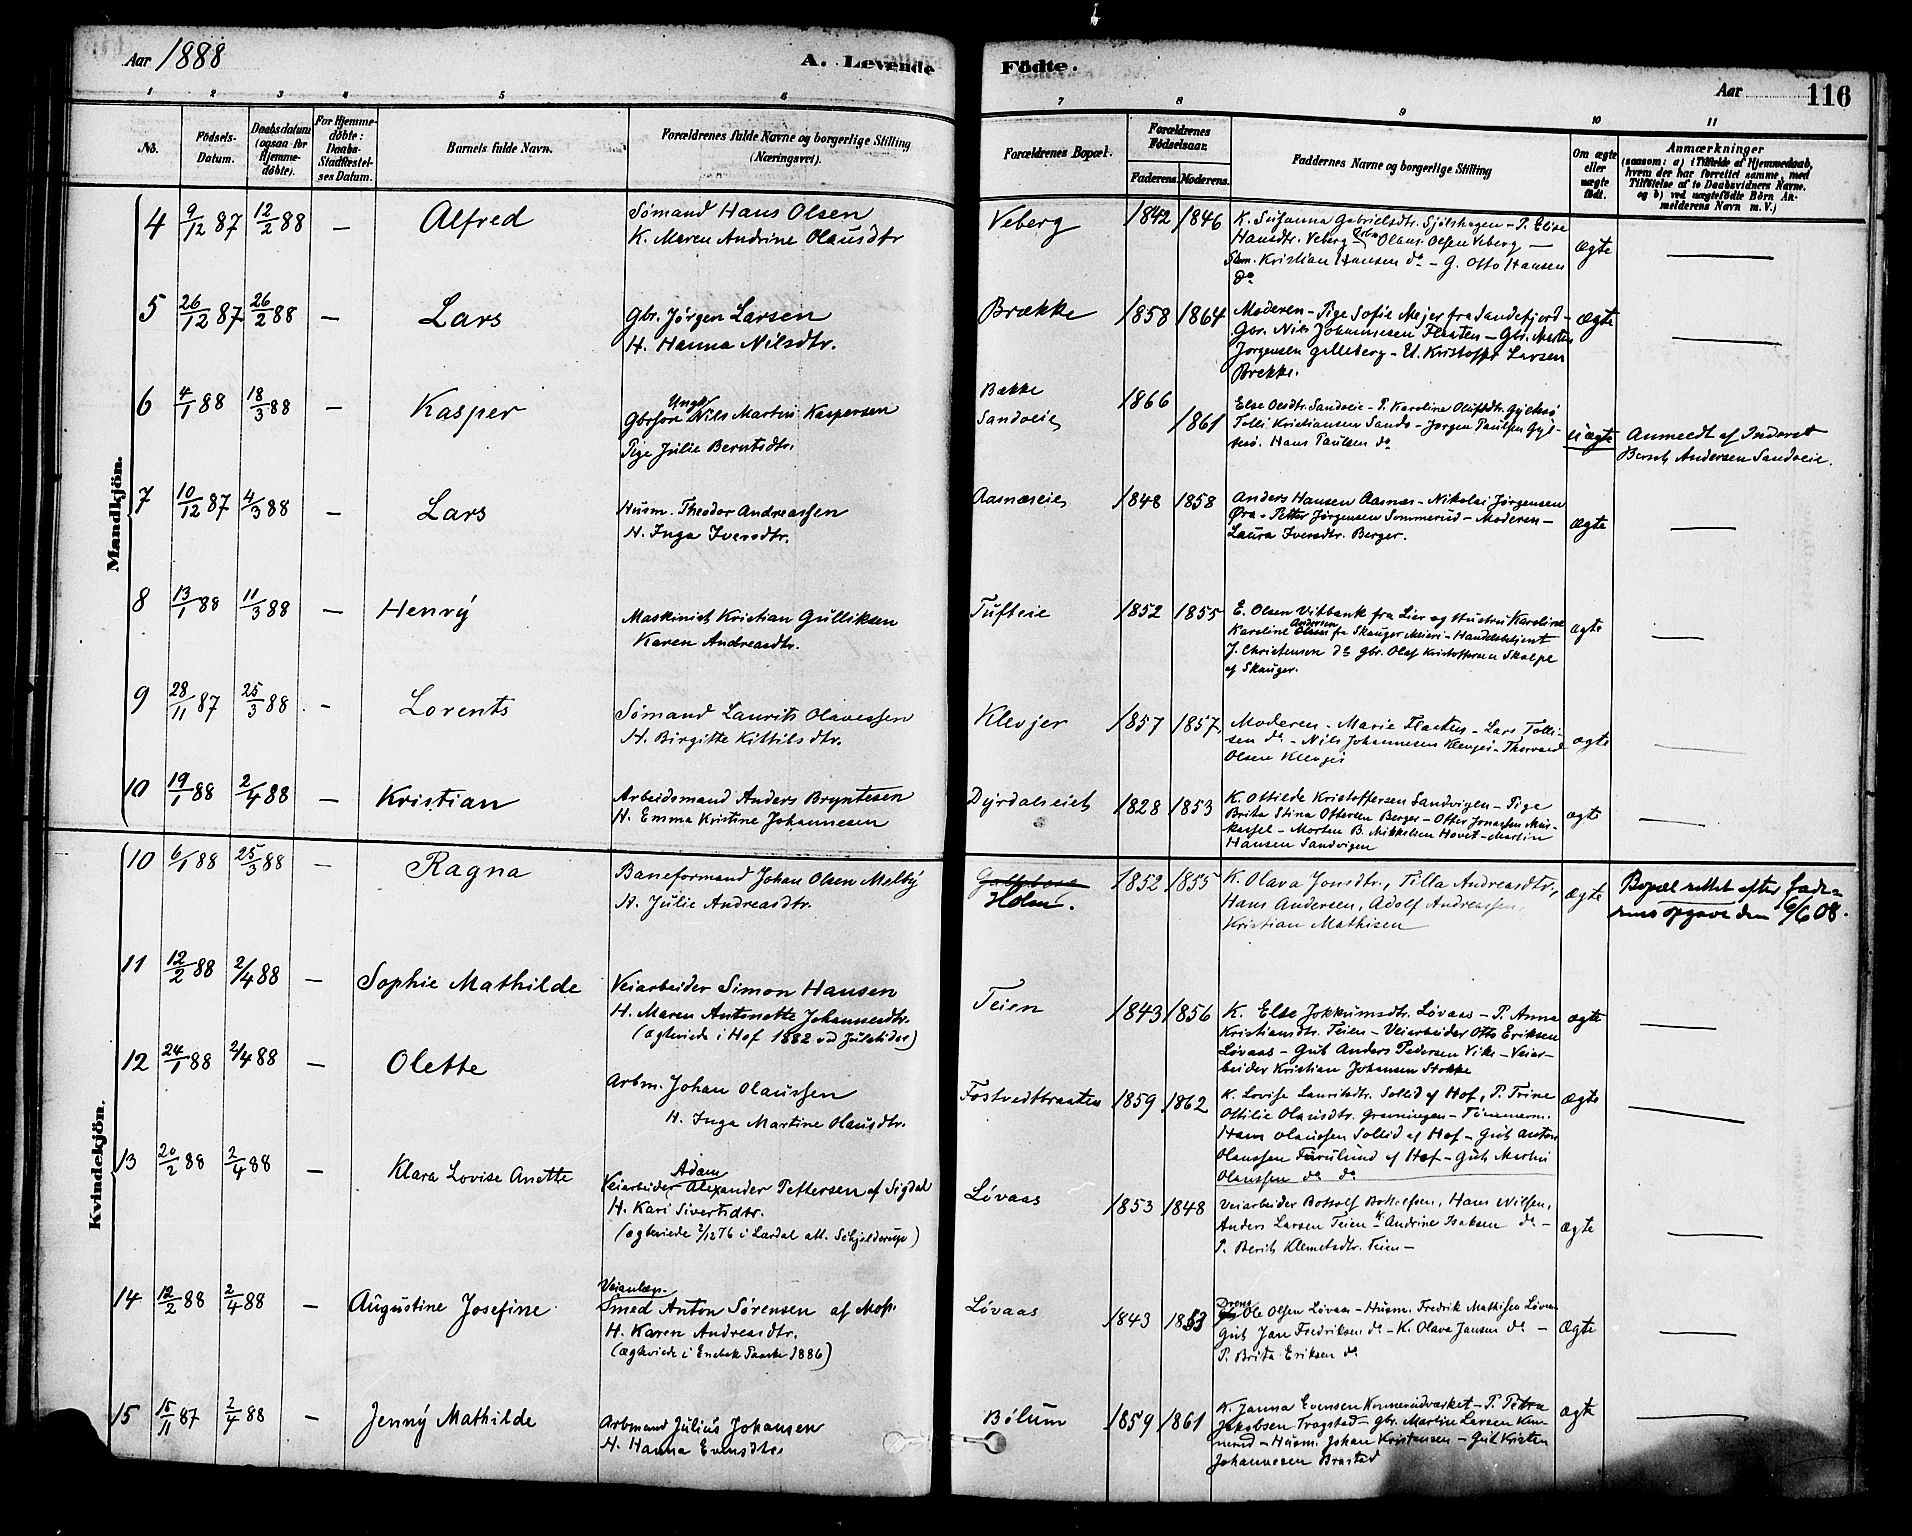 Aar 1888
A. Levende Födte.
Aar 116
1 2 3 4 5 6 7 8 9 10 11
No.
Födsels-Datum.
Daabsdatum (ogsaa for Hjemme-döbte).
For Hjemme-döbte: Daabs-Stadfæstel-ses Datum.
Barnets fulde Navn.
Forældrenes fulde Navne og borgerlige Stilling (Næringsvei).
Forældrenes Bopæl.
Forældrenes Födselsaar.
Faderens. Moderens.
Faddernes Navne og borgerlige Stilling
Om ægte eller uægte födt.
Anmærkninger
(saasom: a) i Tilfælde af Hjemmedaab, hvem der har forrettet samme, med Tilföielse af to Daabsvidners Navne. og b) ved uægtefödte Börn An-melderens Navn m. V.)
Mandkjön.
4 9/12 87 12/2 88 — Alfred
Sømand Hans Olsen
K. Maren Andrine Olausdtr
Veberg 1842 1846
K. Susanna Gabrielsdtr. - P. Elise
Hansdtr. Veberg Olaus Olsen Veberg —
Kristian Hansen do - G. Otto Hansen
do
ægte
5 26/12 87 26/2 88 — Lars
Gbr. Jørgen Larsen
H. Hanna Nilsdtr.
Brække 1858 1864
Moderen - Pige Sofie Mejer fra Sandefjord -
Gbr. Nils Johannesen Flaaten - Gbr. Martin
Jørgensen Galleberg - U. Kristoffer Larsen
Brekke.
ægte
6 4/1 88 18/3 88 — Kasper
Ungk.
Gbrsøn Nils Martin Kaspersen
Pige Julie Berntsdtr.
Bække
Sandveie
1866 1861
Else Sandveie - P. Karoline Olufsdtr.
Tolli Kristiansen Sande - Jørgen Paulsen
Hans Paulsen do
uægte
Anmeldt af Inderst
Bernt Andersen Sandveie.
7 10/12 87 4/3 88 — Lars
Husm. Theodor Andreassen
H. Inga Iversdtr.
Aasnæseiet 1848 1858
Anders Hansen Aasnæs - Nikolai Jørgensen
Øra - Petter Jørgensen Sommerud - Moderen -
Laura Iversdtr. Berger.
ægte
8 13/1 88 11/3 88 — Henry
Maskinist Kristian Gulliksen
Karen Andreasdtr.
Tufteie 1852 1855
E. Olsen Vitbank fra Lier og Hustru Karoline
Karoline Andersen fra Skauger Meieri - Handelsbetjent
J. Christensen do Gbr. Olaf Kristoffersen Skalpe
af Skauger.
ægte
9 28/11 87 25/3 88 - Lorents
Sømand Laurits Olavessen
H. Birgitte Kittilsdtr.
Klevjer 1857 1857
Moderen - Marie Flaaten - Lars Tolli-
sen do - Nils Johannesen Klevjer - Thorvald
Olsen Klevjer
ægte
10 19/1 88 2/4 88 — Kristian
Arbeidsmand Anders Bryntesen
H. Emma Kristine Johannesen
Dyrdalseiet 1828 1853
K. Ottilde Kristoffersen Sandvigen - Pige
Brita Stina Ottersen Berger - Otter Jonassen
- Morten B. Mikkelsen Hovet - Martin
Hansen Sandvigen
ægte
Kvindekjön.
10 6/1 88 25/3 88 — Ragna
Baneformand Johan Olsen Melby
H. Julie Andreasdtr.
Galleberg
Holm.
1852 1855
K. Olava Jonsdtr., Tilla Andreasdtr,
Hans Andersen, Adolf Andreassen,
Kristian Mathisen
ægte
Bopæl rettet efter fade-
rens opgave den 6/6 08.
11 12/2 88 2/4 88 — Sophie Mathilde
Veiarbeider Simon Hansen
H. Maren Antonette Johannesdtr.
(ægteviede i Hof 1882 ved Juletider)
Teien 1843 1856
K. Else Jokkumsdtr. Løvaas - P. Anna
Kristiansdtr. Teien - Veiarbeider Otto Eriksen
Løvaas - Gut Anders Pedersen Vike - Veiar-
beider Kristian Johansen Stokke
ægte
12 24/1 88 2/4 88 — Olette
Arbm. Johan Olaussen
H. Inga Martine Olausdtr.
Fostvedtbraaten 1859 1862
K. Lovise Lauritsdtr. Sollid af Hof, P. Trine
Ottilie Olausdtr. Grønningen - Tømmerm.
Hans Olaussen Sollid af Hof - Gut Anton
Olaussen Furulund af Hof - Gut Martin
Olaussen do do
ægte
13 20/2 88 2/4 88 — Klara Lovise Anette
Adam
Veiarbeider Alexander Pettersen af Sigdal
H. Kari Sivertsdtr.
(ægteviede 2/12 76 i Lardal att. Schjelderup)
Løvaas 1853 1848
Veiarbeider Bottolf Bottolfsen, Hans Nilsen,
Anders Larsen Teien K. Andrine Isaksen do -
P. Berit Klemetsdtr. Teien -
ægte
14 12/2 88 2/4 88 — Augustine Josefine
Veianlæg.
Smed Anton Sørensen af Moss
H. Karen Andreasdtr.
(ægteviede i Enebak Paaske 1886)
Løvaas 1843 1853
Dreng
Ole Olsen Løvaas - Husm. Fredrik Mathisen Løvaas
Gut Jan Fredriksen do - K. Olava Jansen do -
P. Brita Eriksen do
ægte
15 15/11 87 2/4 88 — Jenny Mathilde
Arbmand Julius Johansen
H. Hanna Evensdtr
Bølum 1859 1861
K. Janna Evensen Kommerudværket - P. Petra
Jakobsen Trogstad - Gbr. Martin Larsen Kom-
merud - Husm. Johan Kristensen - Gut Kristen
Johannesen Brastad
ægte